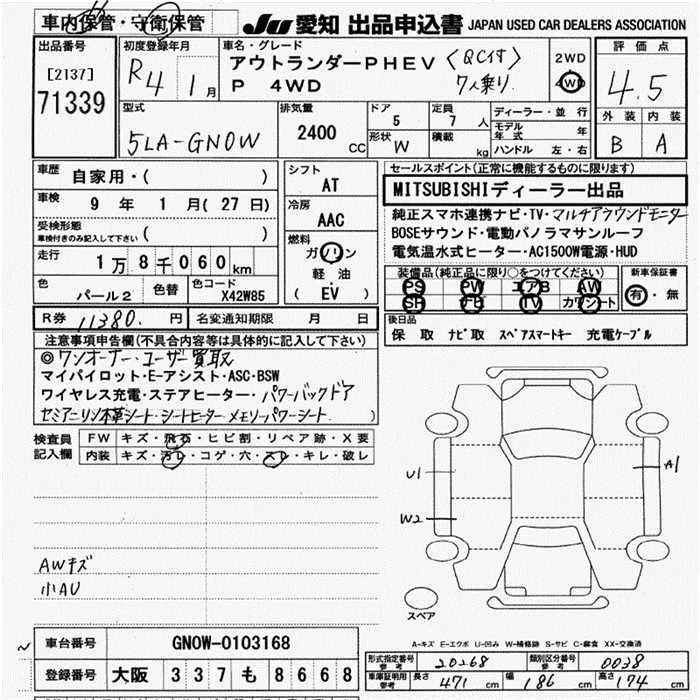 車内保管・守衛保管
JU 愛知 出品申込書 JAPAN USED CAR DEALERS ASSOCIATION
出品番号
[2137]
71339
初度登録年月
R4 1月
車名・グレード
アウトランダーPHEV 〈QC付〉
P 4WD 7人乗り.
2WD
4WD
評価点
4.5
外装 内装
B A
型式
5LA-GN0W
排気量
2400 CC
ドア
5
定員
7 人
形状
W
積載
kg
ディーラー・並行
モデル年式 年
ハンドル 左・右
車歴
自家用・( )
車検
9 年 1 月(27日)
受検形態
車検付きのみ記入して下さい( )
走行
1万8千060km
色
パール2
色替
色コード
X42W85
シフト
AT
冷房
AAC
燃料
ガソリン
軽油
(EV)
セールスポイント(正常に機能するものに限ります)
MITSUBISHIディーラー出品
純正スマホ連携ナビ・TV・マルチアラウンドモニター
BOSEサウンド・電動パノラマサンルーフ
電気温水式ヒーター・AC1500W電源・HUD
装備品(純正品に限り○をつけてください)
PS PW エアB AW
SR ナビ TV カワシート
新車保証書
有・無
R券 11380. 円
名変通知期限 月 日
後日品
保 取 ナビ取 スペアスマートキー 充電ケーブル
注意事項申告欄(不具合内容等は具体的に記入して下さい)
◎ワンオーナー・ユーザー買取
マイパイロット・E-アシスト・ASC・BSW
ワイヤレス充電・ステアヒーター・パワーバックドア
セミアニリン本革シート・シートヒーター・メモリーパワーシート.
検査員記入欄
FW キズ・飛石・ヒビ割・リペア跡・X要
内装 キズ・汚レ・コゲ・穴・スレ・キレ・破レ
U1
W2
A1
AWキズ
小AU
スペア
A-キズ E-エクボ U-凹み W-補修跡 S-サビ C-腐食 XX-交換済
車台番号 GN0W-0103168
登録番号 大阪 337 も 8668
形式指定番号 参考 20268
類別区分番号 参考 0038
車庫証明用 参考 長さ 471 cm 幅 186 cm 高さ 174 cm